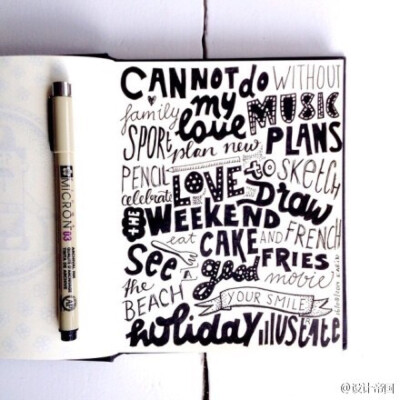 CANNOT do WITHOUT
family my MUSIC
love
SPORT plan new PLANS
PENCIL to sketch
celebrate LOVE to Draw
THE WEEKEND
eat CAKE AND FRENCH
see a good FRIES
the movie
BEACH YOUR SMILE
holiday illustrate
MICRON 03